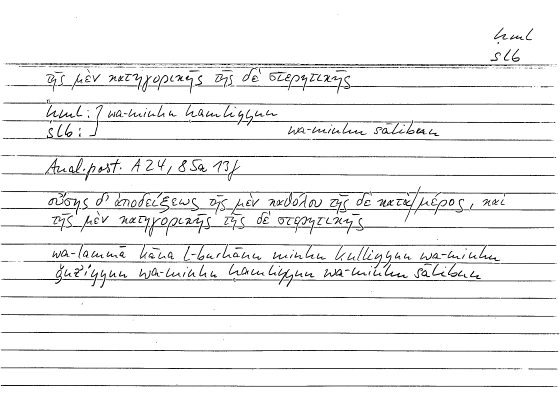 ḥml
slb
τῆς μὲν κατηγορικῆς τῆς δὲ στερητικῆς
ḥml : } wa-minhu ḥamliyyun
slb : wa-minhu sālibun
Anal. post. A 24, 85a 13f
οὔσης δ' ἀποδείξεως τῆς μὲν καθόλου τῆς δὲ κατὰ/μέρος, καὶ
τῆς μὲν κατηγορικῆς τῆς δὲ στερητικῆς
wa-lammā kāna l-burhānu minhu kulliyyun wa-minhu
ǧuzʾiyyun wa-minhu ḥamliyyun wa-minhu sālibun